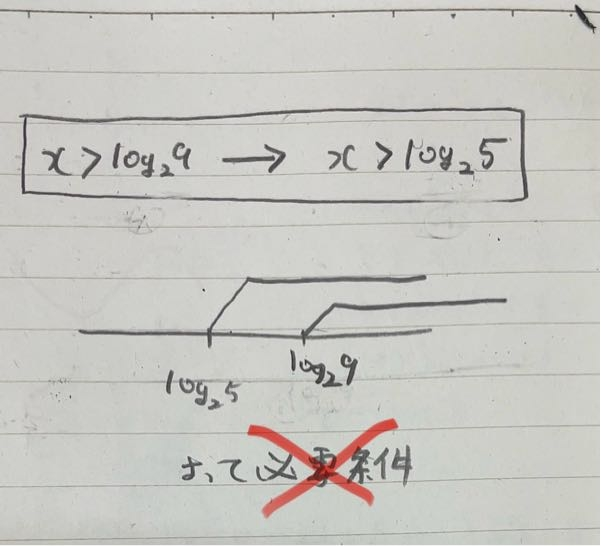 x > log₂9 → x > log₂5
log₂5 log₂9
よって必要条件